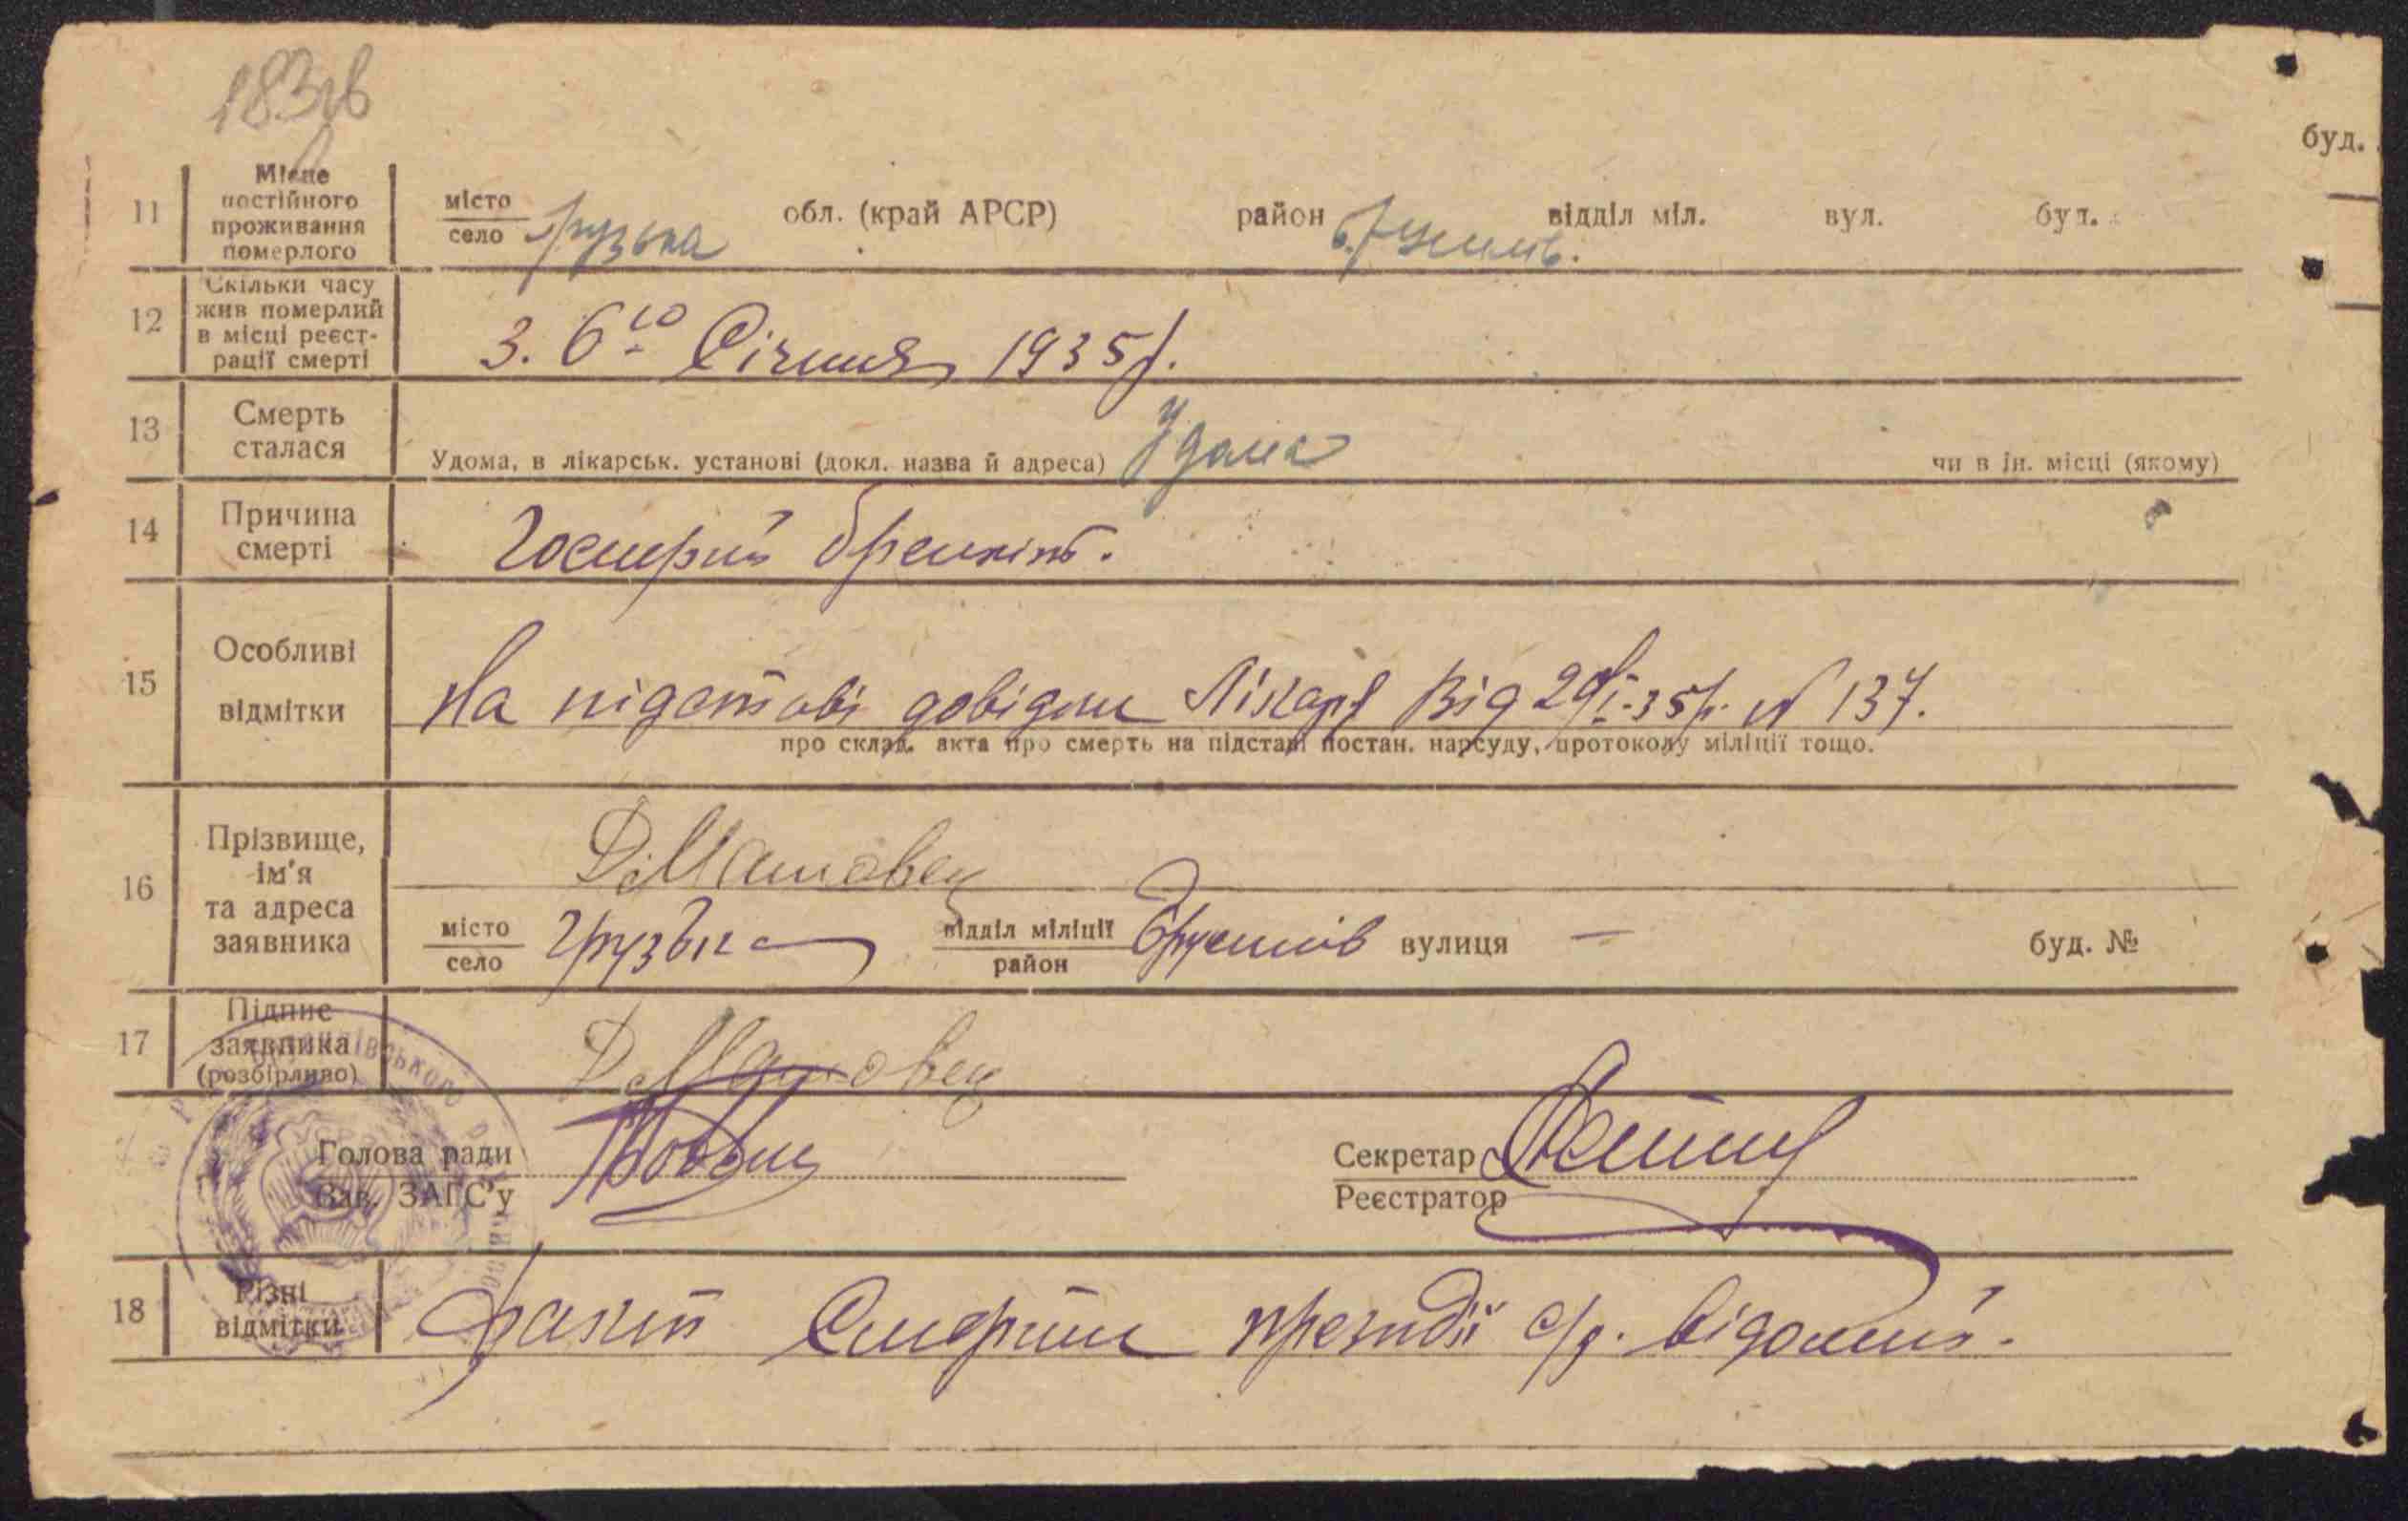 183зв
буд.
11 Місце постійного проживання померлого місто село Грузька обл. (край АРСР) район Брусилів. відділ міл. вул. буд.
12 Скільки часу жив померлий в місці реєстрації смерті З. 6го Січня 1935 р.
13 Смерть сталася Удома, в лікарськ. установі (докл. назва й адреса) Удома чи в ін. місці (якому)
14 Причина смерті Гострий бронхіт.
15 Особливі відмітки На підставі довідки Лікаря Від 29/I-35р. N 137.
про склад. акта про смерть на підставі постан. нарсуду, протоколу міліції тощо.
16 Прізвище, ім'я та адреса заявника
місто село Грузька відділ міліції район Брусилів вулиця — буд. №
17 Підпис заявника (розбірливо)
Голова ради Зав. ЗАГС'у Секретар Реєстратор
18 Різні відмітки Факт Смерти президії с/р. відомий.